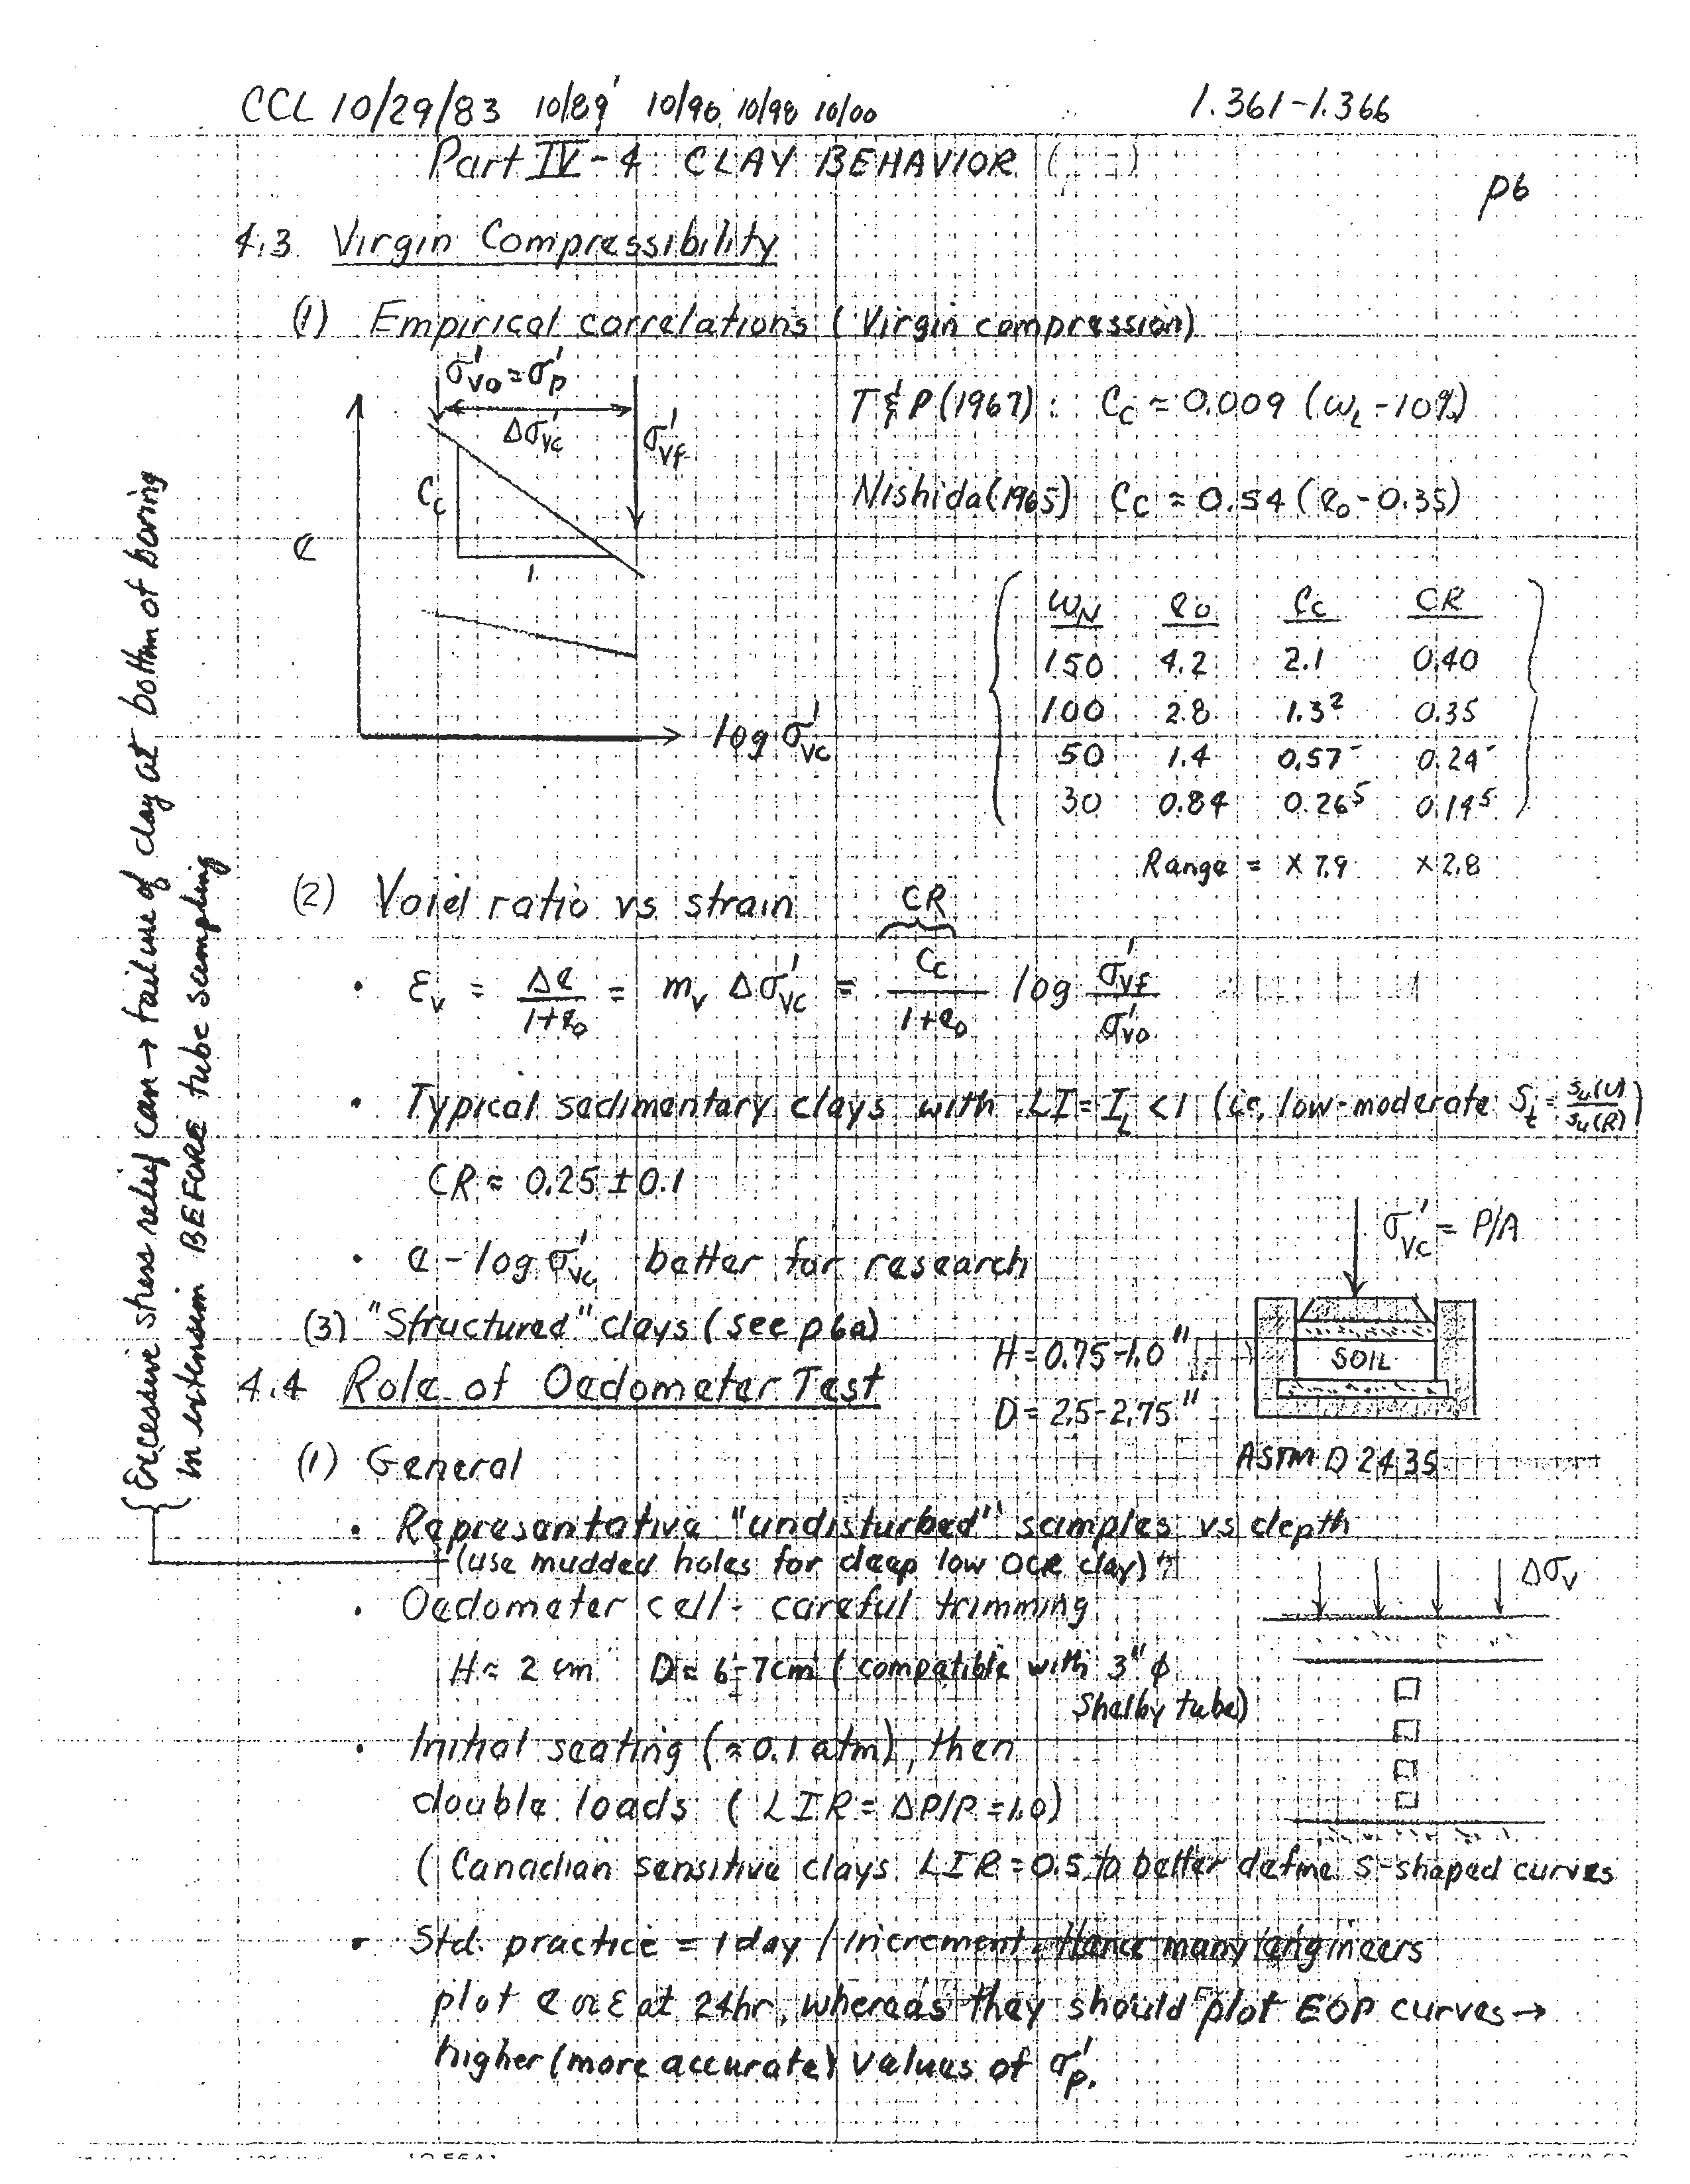 CCL 10/29/83 10/89 10/90 10/98 10/00 1.361-1.366
Part IV-4 CLAY BEHAVIOR
p6
4.3 Virgin Compressibility
(1) Empirical correlations (Virgin compression)
σ'vo = σ'p
Δσ'vc
σ'vf
Cc
1
e
log σ'vc
T & P (1967): Cc ≈ 0.009 (wL - 10%)
Nishida (1965) Cc ≈ 0.54 (eo - 0.35)
wN eo Cc CR
150 4.2 2.1 0.40
100 2.8 1.3² 0.35
50 1.4 0.57⁻ 0.24⁻
30 0.84 0.26⁵ 0.14⁵
Range = x 7.9 x 2.8
(2) Void ratio vs strain
CR
• εv = Δe/(1+eo) = mv Δσ'vc = Cc/(1+eo) log σ'vf/σ'vo
• Typical sedimentary clays with LI = IL < 1 (ie, low-moderate St = su(U)/su(R))
CR ≈ 0.25 ± 0.1
• e - log σ'vc better for research
(3) "Structured" clays (see p6a)
σ'vc = P/A
SOIL
H = 0.75-1.0"
D = 2.5-2.75"
ASTM D 2435
4.4 Role of Oedometer Test
(1) General
• Representative "undisturbed" samples vs depth
(use mudded holes for deep low OCR clay)
Excessive stress relief can → failure of clay at bottom of boring
in extension BEFORE tube sampling
• Oedometer cell - careful trimming
H ≈ 2 cm D = 6-7cm (compatible with 3" φ
Shelby tube)
Δσv
• Initial seating (≈ 0.1 atm), then
double loads (LIR = ΔP/P = 1.0)
(Canadian sensitive clays LIR = 0.5 to better define S-shaped curves
• Std. practice = 1 day / increment. Hence many engineers
plot e or ε at 24hr, whereas they should plot EOP curves →
higher (more accurate) values of σ'p.